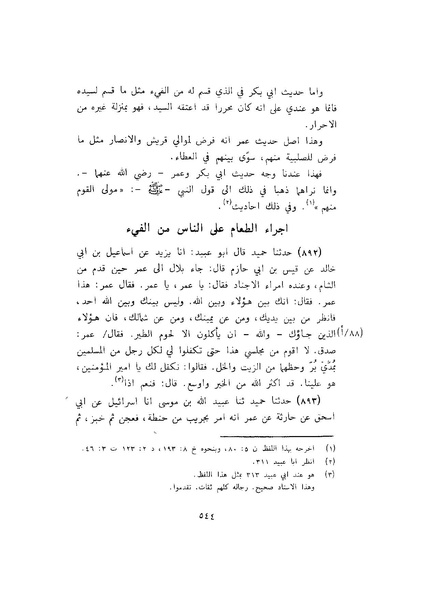 واما حديث ابي بكر في الذي قسم له من الفيء مثل ما قسم لسيده
فانما هو عندي على انه كان محررا قد اعتقه السيد، فهو بمنزلة غيره من
الاحرار.
وهذا اصل حديث عمر انه فرض لموالي قريش والانصار مثل ما
فرض للصليبة منهم، سوّى بينهم في العطاء.
فهذا عندنا وجه حديث ابي بكر وعمر - رضي الله عنهما -.
وانما نراهما ذهبا في ذلك الى قول النبي - ﷺ -: «مولى القوم
منهم»(١). وفي ذلك احاديث(٢).
اجراء الطعام على الناس من الفيء
(٨٩٢) حدثنا حميد قال ابو عبيد: انا يزيد عن اسماعيل بن ابي
خالد عن قيس بن ابي حازم قال: جاء بلال الى عمر حين قدم من
الشام، وعنده امراء الاجناد فقال: يا عمر، يا عمر. فقال عمر: هذا
عمر. فقال: انك بين هؤلاء وبين الله. وليس بينك وبين الله احد،
فانظر من بين يديك، ومن عن يمينك، ومن عن شمالك، فان هؤلاء
(٨٨/أ) الذين جاؤك - والله - ان يأكلون الا لحوم الطير. فقال/ عمر:
صدق. لا اقوم من مجلسي هذا حتى تكفلوا لي لكل رجل من المسلمين
بمُدَّيْ بُرّ وحظهما من الزيت والخل. فقالوا: نكفل لك يا امير المؤمنين،
هو علينا. قد اكثر الله من الخير واوسع. قال: فنعم اذا(٣).
(٨٩٣) حدثنا حميد ثنا عبيد الله بن موسى انا اسرائيل عن ابي
اسحق عن حارثة عن عمر انه امر بجريب من حنطة، فعجن ثم خبز، ثم
(١) اخرجه بهذا اللفظ ن ٥: ٨٠، وبنحوه خ ٨: ١٩٣، د ٢: ١٢٣ ت ٣: ٤٦.
(٢) انظر انا عبيد ٣١١.
(٣) هو عند ابي عبيد ٣١٣ بمثل هذا اللفظ.
وهذا الاسناد صحيح. رجاله كلهم ثقات. تقدموا.
٥٤٤